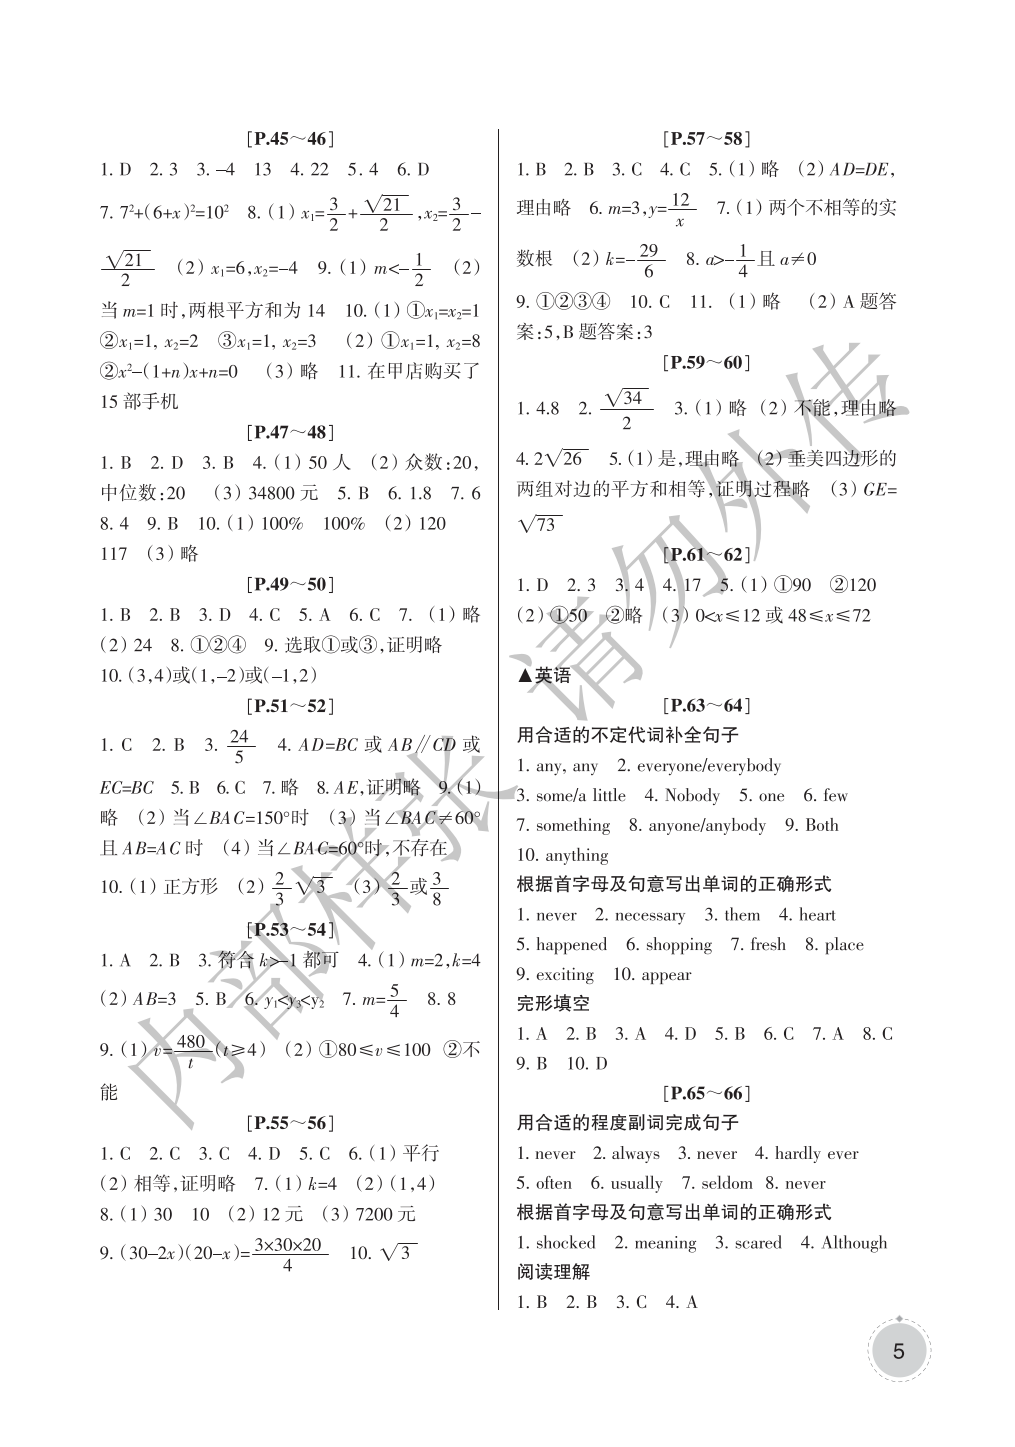 [P.45～46]
1. D　2. 3　3. –4　13　4. 22　5. 4　6. D
7. 7²+(6+x)²=10²　8. (1) x₁=3/2+√21/2, x₂=3/2–
√21/2　(2) x₁=6, x₂=–4　9. (1) m<–1/2　(2)
当 m=1 时,两根平方和为 14　10. (1) ①x₁=x₂=1
②x₁=1, x₂=2　③x₁=1, x₂=3　(2) ①x₁=1, x₂=8
②x²–(1+n)x+n=0　(3) 略　11. 在甲店购买了
15 部手机
[P.47～48]
1. B　2. D　3. B　4. (1) 50 人　(2) 众数:20,
中位数:20　(3) 34800 元　5. B　6. 1.8　7. 6
8. 4　9. B　10. (1) 100%　100%　(2) 120
117　(3) 略
[P.49～50]
1. B　2. B　3. D　4. C　5. A　6. C　7. (1) 略
(2) 24　8. ①②④　9. 选取①或③,证明略
10. (3,4)或(1,–2)或(–1,2)
[P.51～52]
1. C　2. B　3. 24/5　4. AD=BC 或 AB∥CD 或
EC=BC　5. B　6. C　7. 略　8. AE,证明略　9. (1)
略　(2) 当∠BAC=150°时　(3) 当∠BAC≠60°
且 AB=AC 时　(4) 当∠BAC=60°时,不存在
10. (1) 正方形　(2) 2/3 √3　(3) 2/3 或 3/8
[P.53～54]
1. A　2. B　3. 符合 k>–1 都可　4. (1) m=2,k=4
(2) AB=3　5. B　6. y₁<y₃<y₂　7. m=5/4　8. 8
9. (1) v=480/t (t≥4)　(2) ①80≤v≤100　②不
能
[P.55～56]
1. C　2. C　3. C　4. D　5. C　6. (1) 平行
(2) 相等,证明略　7. (1) k=4　(2) (1,4)
8. (1) 30　10　(2) 12 元　(3) 7200 元
9. (30–2x)(20–x)=3×30×20/4　10. √3
[P.57～58]
1. B　2. B　3. C　4. C　5. (1) 略　(2) AD=DE,
理由略　6. m=3,y=12/x　7. (1) 两个不相等的实
数根　(2) k=–29/6　8. a>–1/4 且 a≠0
9. ①②③④　10. C　11. (1) 略　(2) A 题答
案:5,B 题答案:3
[P.59～60]
1. 4.8　2. √34/2　3. (1) 略　(2) 不能,理由略
4. 2√26　5. (1) 是,理由略　(2) 垂美四边形的
两组对边的平方和相等,证明过程略　(3) GE=
√73
[P.61～62]
1. D　2. 3　3. 4　4. 17　5. (1) ①90　②120
(2) ①50　②略　(3) 0<x≤12 或 48≤x≤72
▲英语
[P.63～64]
用合适的不定代词补全句子
1. any, any　2. everyone/everybody
3. some/a little　4. Nobody　5. one　6. few
7. something　8. anyone/anybody　9. Both
10. anything
根据首字母及句意写出单词的正确形式
1. never　2. necessary　3. them　4. heart
5. happened　6. shopping　7. fresh　8. place
9. exciting　10. appear
完形填空
1. A　2. B　3. A　4. D　5. B　6. C　7. A　8. C
9. B　10. D
[P.65～66]
用合适的程度副词完成句子
1. never　2. always　3. never　4. hardly ever
5. often　6. usually　7. seldom　8. never
根据首字母及句意写出单词的正确形式
1. shocked　2. meaning　3. scared　4. Although
阅读理解
1. B　2. B　3. C　4. A
5
内部样张 请勿外传